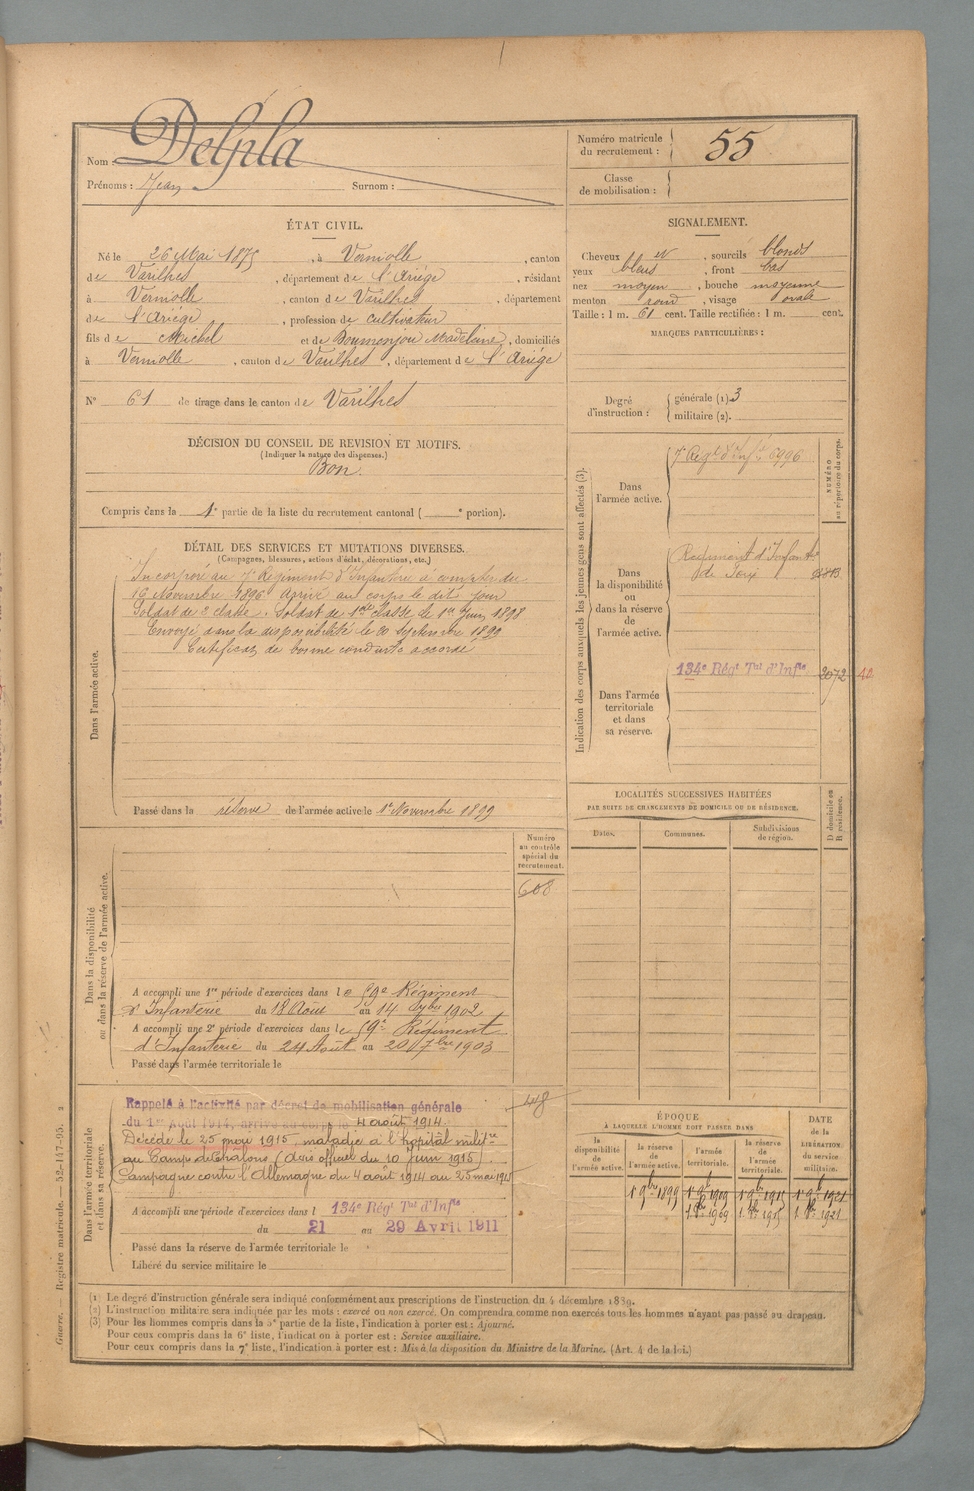 Nom : Delpla
Prénoms : Jean Surnom :
Numéro matricule du recrutement : 55
Classe de mobilisation :
ÉTAT CIVIL.
Né le 26 Mai 1875, à Verniolle, canton
de Varilhes, département de l'Ariége, résidant
à Verniolle, canton de Varilhes, département
de l'Ariége, profession de cultivateur
fils de Michel et de Madeleine, domiciliés
à Verniolle, canton de Varilhes, département de l'Ariége
N° 61 de tirage dans le canton de Varilhes
SIGNALEMENT.
Cheveux et, sourcils blonds
yeux bleus, front bas
nez moyen, bouche moyenne
menton rond, visage ovale
Taille : 1 m. 61 cent. Taille rectifiée : 1 m. cent.
MARQUES PARTICULIÈRES :
Degré d'instruction : générale (1). 3
militaire (2).
DÉCISION DU CONSEIL DE REVISION ET MOTIFS.
(Indiquer la nature des dispenses.)
Bon.
Compris dans la 1e partie de la liste du recrutement cantonal ( e portion).
DÉTAIL DES SERVICES ET MUTATIONS DIVERSES.
(Campagnes, blessures, actions d'éclat, décorations, etc.)
Dans l'armée active.
Incorporé au 7e Régiment d'Infanterie à compter du
16 Novembre 1896 arrivé au corps le dit jour
Soldat de 2e classe. Soldat de 1ère classe le 1er Juin 1898
Envoyé dans la disponibilité le 20 septembre 1899
Certificat de bonne conduite accordé
Passé dans la réserve de l'armée active le 1er Novembre 1899
Indication des corps auxquels les jeunes gens sont affectés (3).
NUMÉRO au répertoire du corps.
Dans l'armée active.
7e Régt d'Inf. 6996
Dans la disponibilité ou dans la réserve de l'armée active.
Régiment d'Infanterie
de Foix
Dans l'armée territoriale et dans sa réserve.
134e Régt Tal d'Infie 3072
LOCALITÉS SUCCESSIVES HABITÉES
PAR SUITE DE CHANGEMENTS DE DOMICILE OU DE RÉSIDENCE.
Dates. Communes. Subdivisions de région. D domicile ou R résidence.
Dans la disponibilité ou dans la réserve de l'armée active.
Numéro au contrôle spécial du recrutement.
608
A accompli une 1re période d'exercices dans le 59e Régiment
d'Infanterie du 18 Août au 14 7bre 1902
A accompli une 2e période d'exercices dans le 59e Régiment
d'Infanterie du 24 Août au 20 7bre 1903
Passé dans l'armée territoriale le
Dans l'armée territoriale et dans sa réserve.
Rappelé à l'activité par décret de mobilisation générale
du 1er Août 1914, arrivé au corps le 4 août 1914.
Décédé le 25 mai 1915, maladie à l'hôpital milit.re
au Camp de Châlons (avis officiel du 10 Juin 1915).
Campagne contre l'Allemagne du 4 août 1914 au 25 mai 1915
A accompli une période d'exercices dans l 134e Régt Tal d'Infie
du 21 au 29 Avril 1911
Passé dans la réserve de l'armée territoriale le
Libéré du service militaire le
ÉPOQUE
À LAQUELLE L'HOMME DOIT PASSER DANS
la disponibilité de l'armée active. la réserve de l'armée active. l'armée territoriale. la réserve de l'armée territoriale. DATE de la LIBÉRATION du service militaire.
1er 9bre 1899 1er 9bre 1909 1er 9bre 1915 1er 9bre 1921
(1) Le degré d'instruction générale sera indiqué conformément aux prescriptions de l'instruction du 4 décembre 1889.
(2) L'instruction militaire sera indiquée par les mots : exercé ou non exercé. On comprendra comme non exercés tous les hommes n'ayant pas passé au drapeau.
(3) Pour les hommes compris dans la 5e partie de la liste, l'indication à porter est : Ajourné.
Pour ceux compris dans la 6e liste, l'indication à porter est : Service auxiliaire.
Pour ceux compris dans la 7e liste, l'indication à porter est : Mis à la disposition du Ministre de la Marine. (Art. 4 de la loi.)
Guerre. — Registre matricule. — 52-147-95.